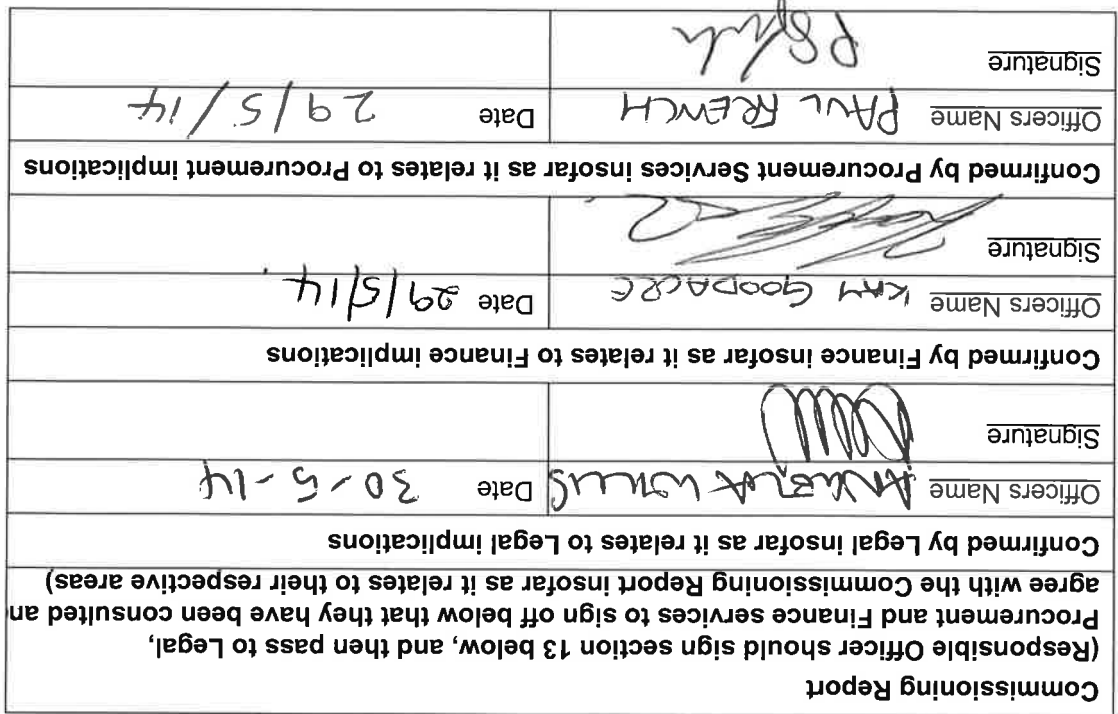 Commissioning Report
(Responsible Officer should sign section 13 below, and then pass to Legal,
Procurement and Finance services to sign off below that they have been consulted an
agree with the Commissioning Report insofar as it relates to their respective areas)
Confirmed by Legal insofar as it relates to Legal implications
Officers Name ANGELA WILLIS Date 30-5-14
Signature
Confirmed by Finance insofar as it relates to Finance implications
Officers Name KAY GOODACRE Date 29/5/14
Signature
Confirmed by Procurement Services insofar as it relates to Procurement implications
Officers Name PAUL FRENCH Date 29/5/14
Signature